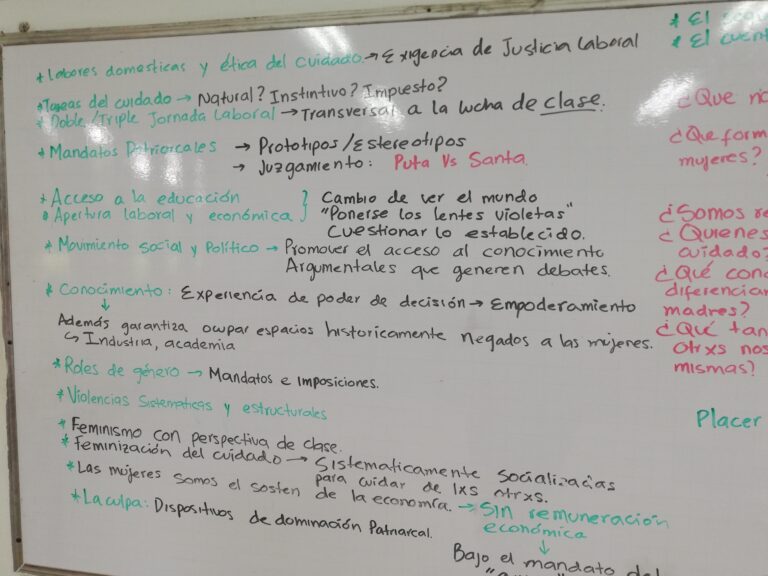 * Labores domesticas y ética del cuidado → Exigencia de Justicia Laboral
* Tareas del cuidado → Natural? Instintivo? Impuesto?
* Doble/Triple Jornada Laboral → Transversal a la lucha de clase.
* Mandatos Patriarcales → Prototipos/Estereotipos
→ Juzgamiento: Puta Vs Santa
* Acceso a la educación } Cambio de ver el mundo
* Apertura laboral y económica } "Ponerse los lentes violetas"
Cuestionar lo establecido.
* Movimiento Social y Político → Promover el acceso al conocimiento
Argumentales que generen debates.
* Conocimiento: Experiencia de poder de decisión → Empoderamiento
↓
Además garantiza ocupar espacios historicamente negados a las mujeres.
↳ Industria, academia
* Roles de género → Mandatos e imposiciones.
* Violencias Sistematicas y estructurales
* Feminismo con perspectiva de clase.
* Feminización del cuidado → Sistematicamente socializadas
para cuidar de lxs otrxs.
* Las mujeres somos el sosten de la economía. → Sin remuneración
económica
↓
* La culpa: Dispositivos de dominación Patriarcal.
Bajo el mandato del
* El
* El cuent
¿Que no
¿Que form
mujeres?
¿Somos re
¿Quienes
cuidado?
¿Qué con
diferencian
madres?
¿Qué tan
otrxs nos
mismas?
Placer